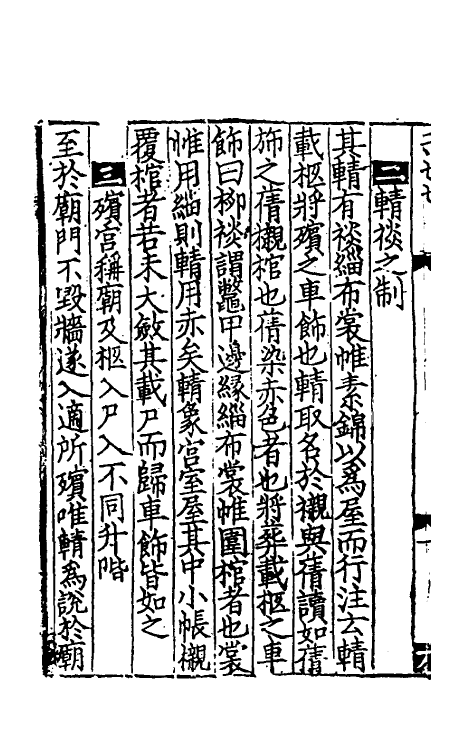 二輤裧之制
其輤有裧緇布裳帷素錦以為屋而行注云輤
載柩將殯之車飾也輤取名於櫬與蒨讀如蒨
斾之蒨櫬棺也蒨染赤色者也將葬載柩之車
飾曰柳裧謂鼈甲邊緣緇布裳帷圍棺者也裳
帷用緇則輤用赤矣輤象宫室屋其中小帳櫬
覆棺者若未大斂其載尸而歸車飾皆如之
三殯宫稱廟及柩入尸入不同升階
至於廟門不毀牆遂入適所殯唯輤為說於廟